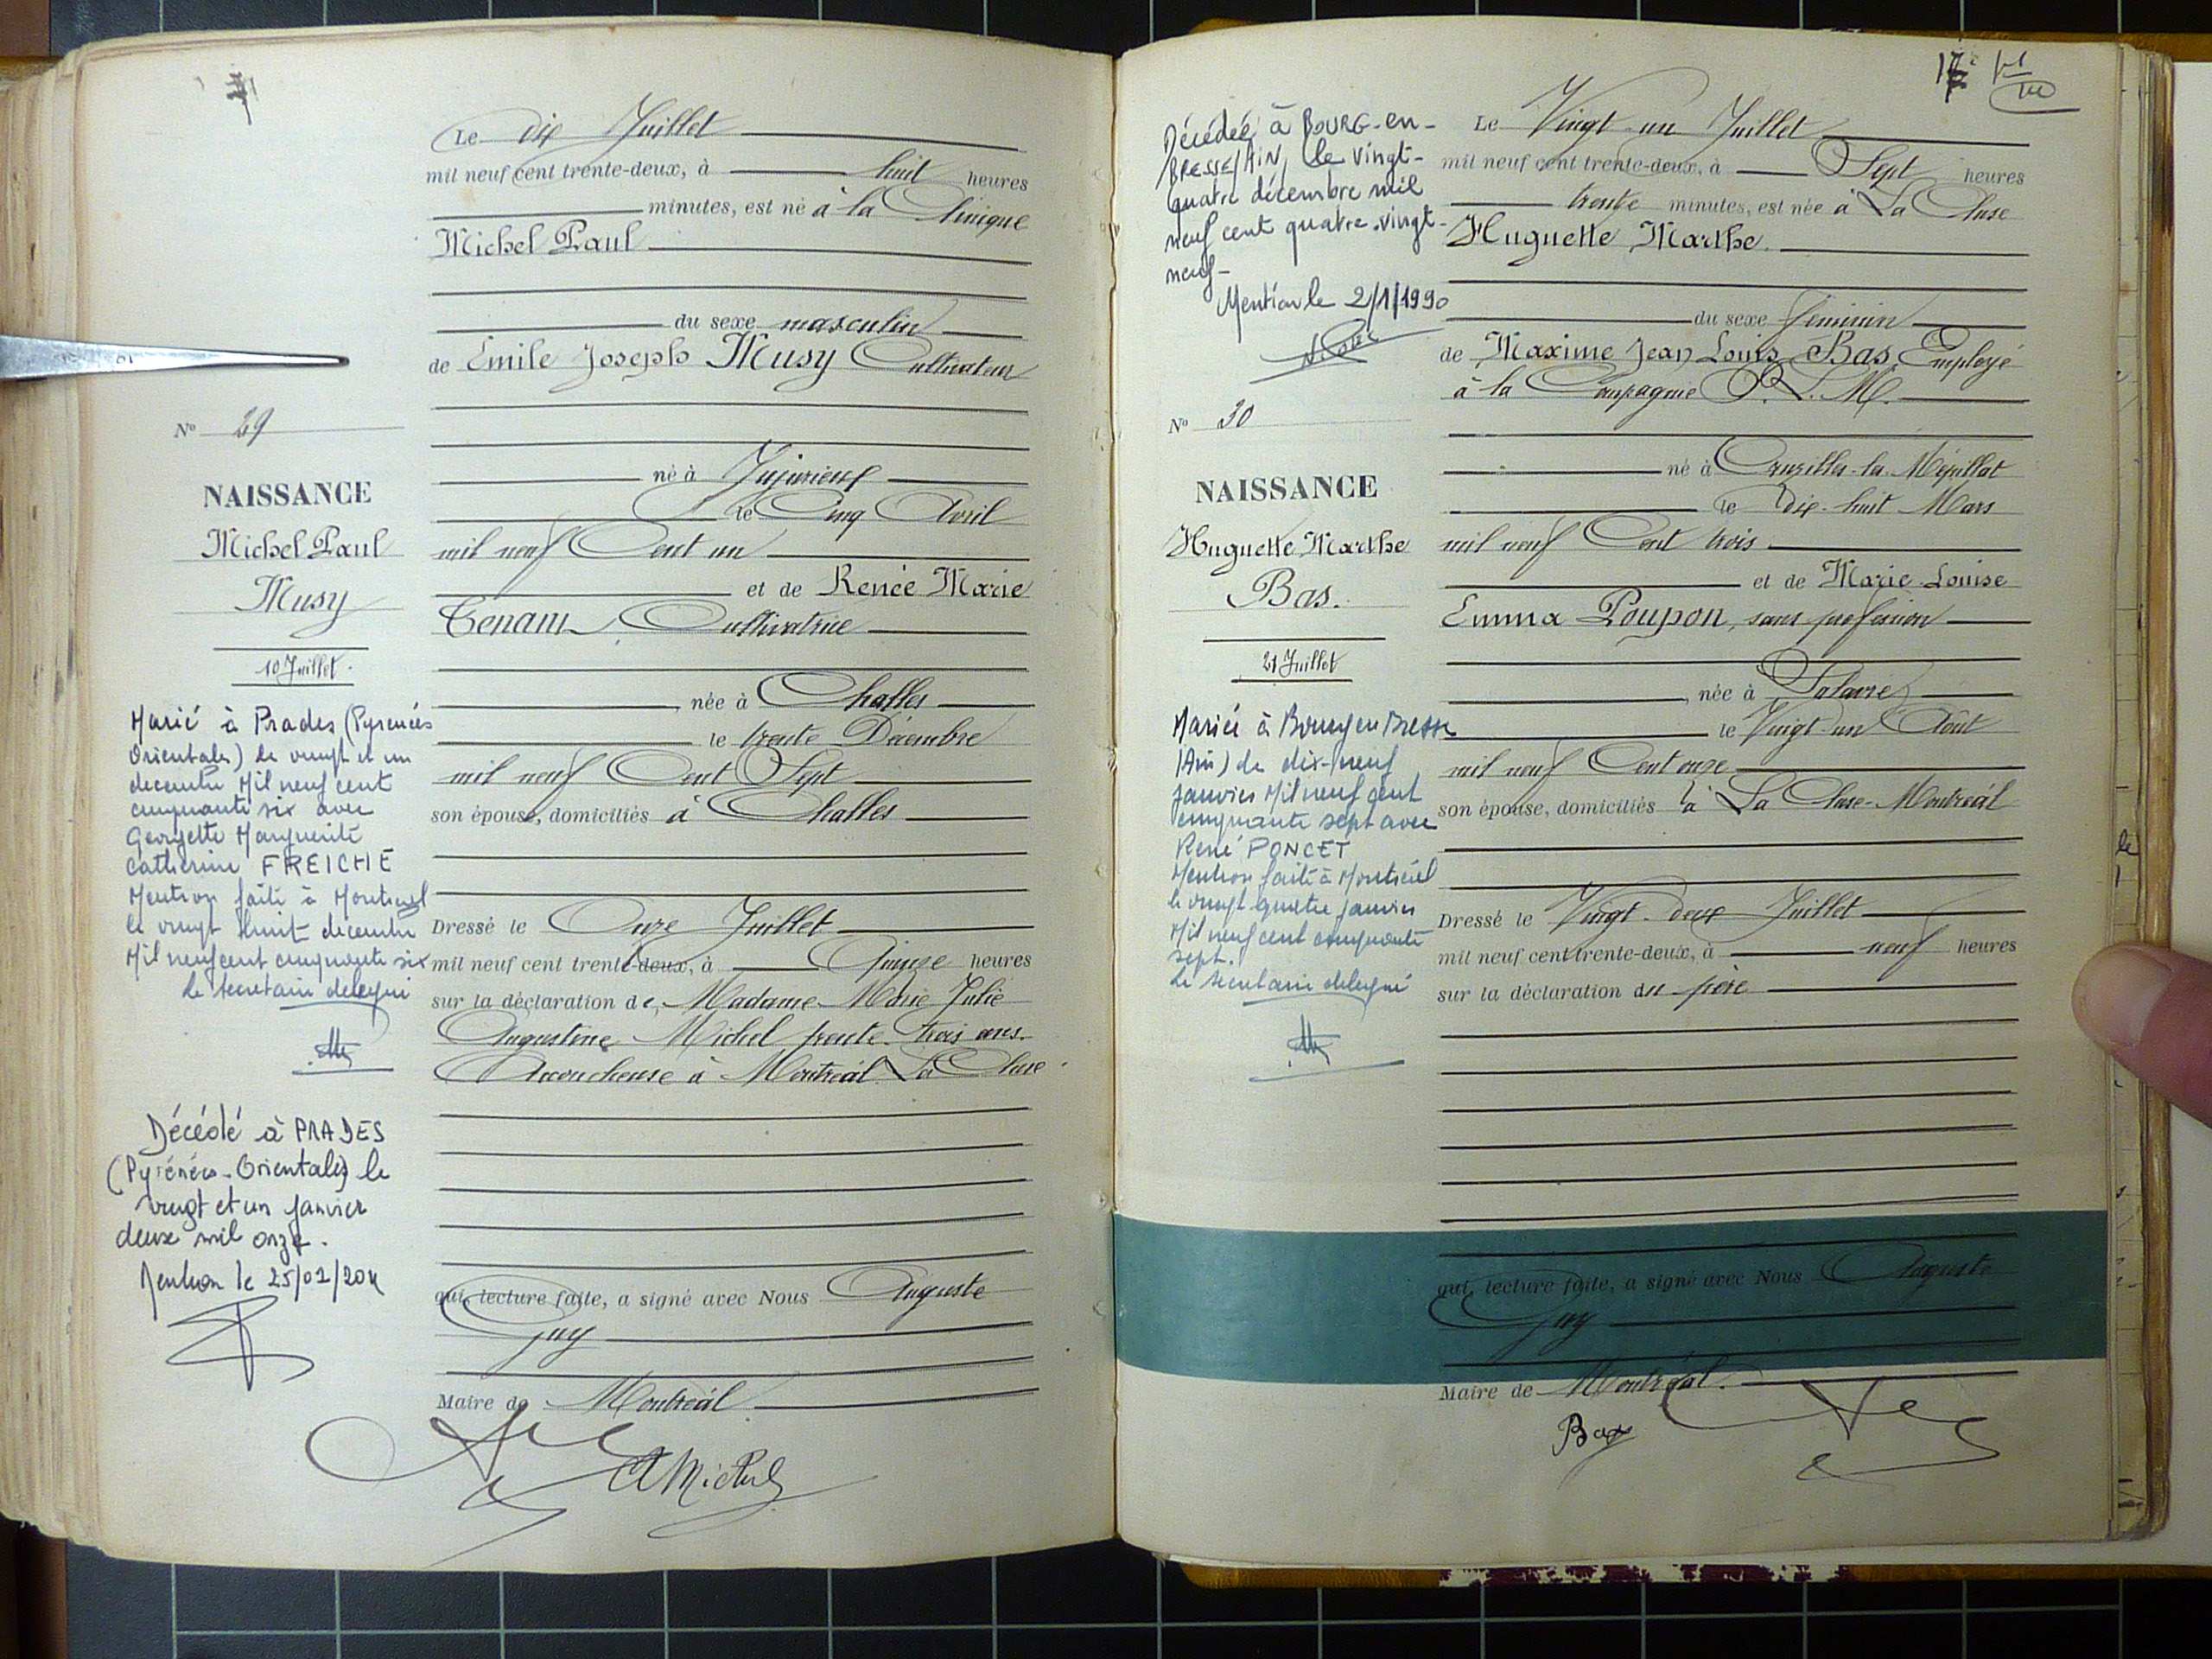 Le dix Juillet
mil neuf cent trente-deux, à huit heures
minutes, est né à la Clinique
Michel Paul
du sexe masculin
de Émile Joseph Musy Cultivateur
né à Jujurieux
le Cinq Avril
mil neuf Cent un
et de Renée Marie
Tenant, Cultivatrice
née à Challes
le trente Décembre
mil neuf Cent Sept
son épouse, domiciliés à Challes
Dressé le Onze Juillet
mil neuf cent trente-deux, à Quinze heures
sur la déclaration de Madame Marie Julie
Augustine Michel trente-trois ans
Accoucheuse à Montréal La Cluse
qui, lecture faite, a signé avec Nous Auguste
Guy
Maire de Montréal
A Michel
No 29
NAISSANCE
Michel Paul
Musy
10 Juillet.
Marié à Prades (Pyrenées
Orientales) le vingt et un
decembre Mil neuf cent
cinquante six avec
Georgette Marguerite
Catherine FREICHE
Mention faite à Montreal
le vingt huit decembre
Mil neuf cent cinquante six
Le secretaire delegué
Décédé à PRADES
(Pyrénées-Orientales) le
vingt et un janvier
deux mil onze.
Mention le 25/01/2011
17
Le Vingt-un Juillet
mil neuf cent trente-deux, à Sept heures
trente minutes, est née à La Cluse
Huguette Marthe
du sexe féminin
de Maxime Jean Louis Bas, Employé
à la Compagnie P. L. M.
né à Cruzilles-les-Mépillat
le Dix-huit Mars
mil neuf Cent trois
et de Marie-Louise
Emma Poupon, sans profession
née à Salavre
le Vingt-un Août
mil neuf Cent onze
son épouse, domiciliés à La Cluse-Montréal
Dressé le Vingt-deux Juillet
mil neuf cent trente-deux, à neuf heures
sur la déclaration du père
qui, lecture faite, a signé avec Nous Auguste
Guy
Maire de Montréal.
Bas
Décédée à BOURG-en-
BRESSE/AIN, le vingt-
quatre décembre mil
neuf cent quatre-vingt-
neuf-
Mention le 2/1/1990
No 30
NAISSANCE
Huguette Marthe
Bas.
21 Juillet
Mariée à Bourg en Bresse
(Ain) le dix-neuf
janvier Mil neuf cent
cinquante sept avec
René PONCET
Mention faite à Montréal
le vingt-quatre janvier
Mil neuf cent cinquante
sept.
Le secretaire delegué